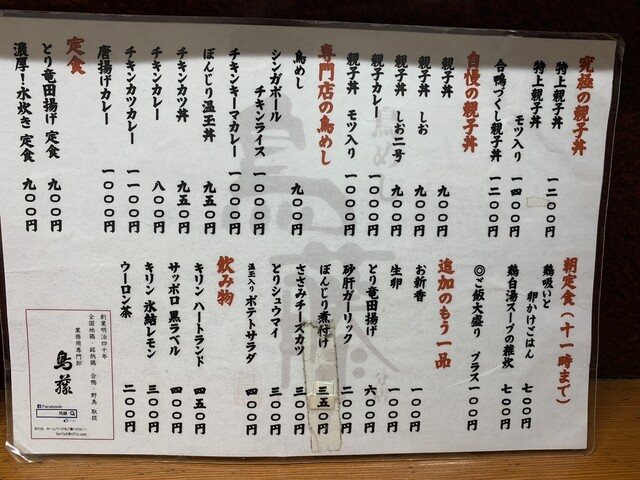 究極の親子丼
特上親子丼 一二〇〇円
特上親子丼
モツ入り 一四〇〇円
合鴨づくし親子丼 一二〇〇円
自慢の親子丼
親子丼 九〇〇円
親子丼 しお 九〇〇円
親子丼 しお二号 九〇〇円
親子カレー 一〇〇〇円
親子丼 モツ入り 一〇〇〇円
専門店の鳥めし
鳥めし 九〇〇円
シンガポール
チキンライス 一〇〇〇円
チキンキーマカレー 一〇〇〇円
ぼんじり温玉丼 九五〇円
チキンカツ丼 九五〇円
チキンカレー 八〇〇円
チキンカツカレー 一一〇〇円
唐揚げカレー 一〇〇〇円
定食
とり竜田揚げ 定食 九〇〇円
濃厚！水炊き 定食 九〇〇円
朝定食（十一時まで）
鶏吸いと
卵かけごはん 七〇〇円
鶏白湯スープの雑炊 七〇〇円
◎ご飯大盛り プラス一〇〇円
追加のもう一品
お新香 一〇〇円
生卵 一〇〇円
とり竜田揚げ 六〇〇円
砂肝ガーリック 二〇〇円
ぼんじり煮付け 三五〇円
ささみチーズカツ 三〇〇円
とりシュウマイ 三〇〇円
温玉入りポテトサラダ 四〇〇円
飲み物
キリン ハートランド 四五〇円
サッポロ 黒ラベル 四〇〇円
キリン 氷結レモン 三〇〇円
ウーロン茶 二〇〇円
創業明治四十年
全国地鶏・銘柄鶏・合鴨・野鳥 取扱
業務用専門卸
鳥藤
Facebook
鳥藤